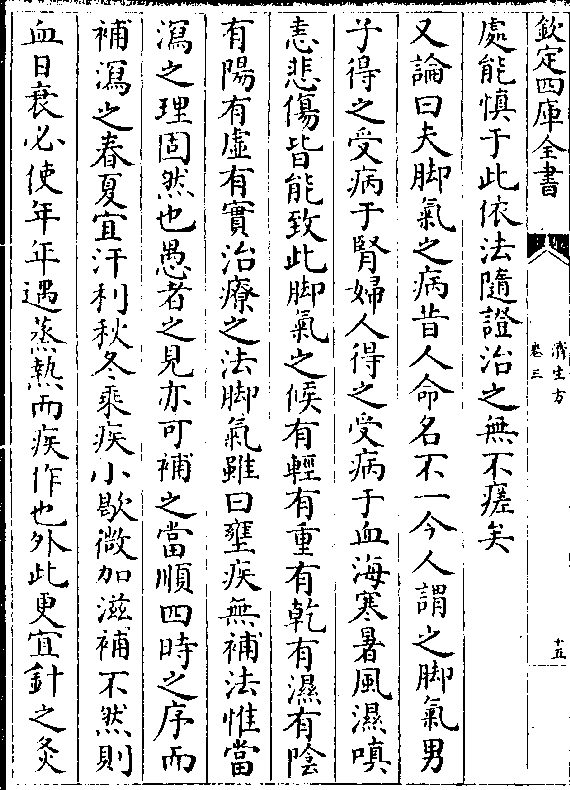 欽定四庫全書
濟生方
卷三
十五
處能慎于此依法隨證治之無不瘥矣
又論曰夫脚氣之病昔人命名不一今人謂之脚氣男
子得之受病于腎婦人得之受病于血海寒暑風濕嗔
恚悲傷皆能致此脚氣之候有輕有重有乾有濕有陰
有陽有虛有實治療之法脚氣雖曰壅疾無補法惟當
瀉之理固然也愚者之見亦可補之當順四時之序而
補瀉之春夏宜汗利秋冬乘疾小歇微加滋補不然則
血日衰必使年年遇蒸熱而疾作也外此更宜針之灸